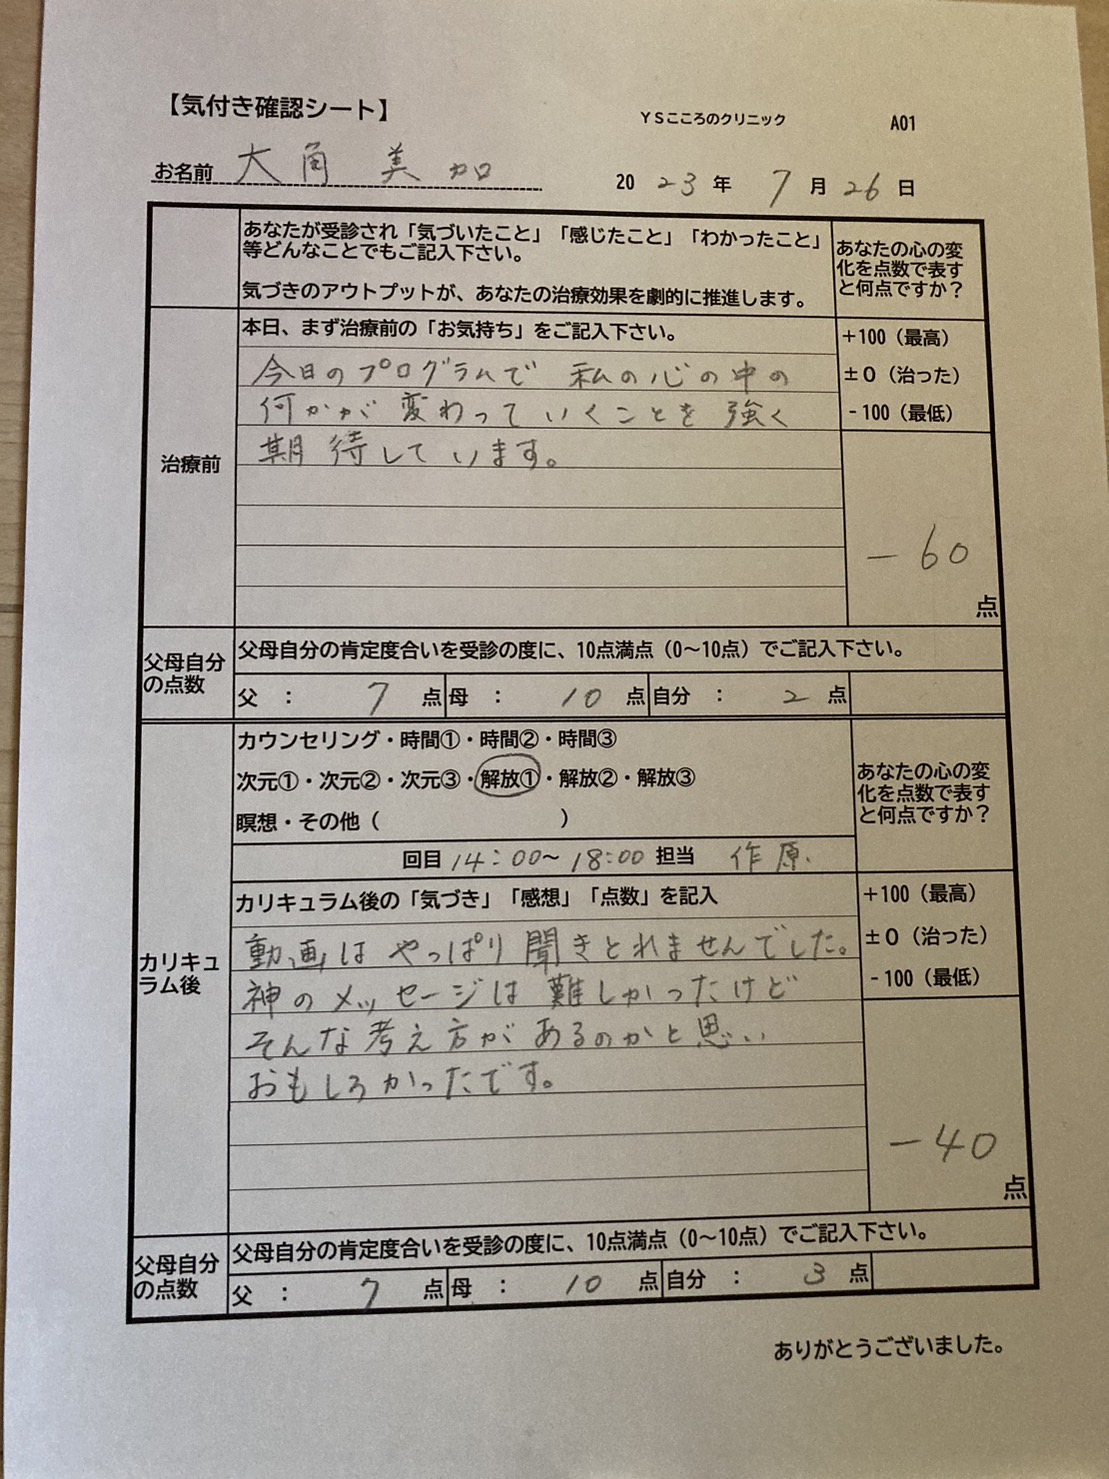 【気付き確認シート】
YSこころのクリニック
A01
お名前 大角 美加
2023年 7月26日
あなたが受診され「気づいたこと」「感じたこと」「わかったこと」
等どんなことでもご記入下さい。
気づきのアウトプットが、あなたの治療効果を劇的に推進します。
あなたの心の変
化を点数で表す
と何点ですか？
治療前
本日、まず治療前の「お気持ち」をご記入下さい。
今日のプログラムで 私の心の中の
何かが変わっていくことを強く
期待しています。
+100（最高）
±0（治った）
-100（最低）
-60
点
父母自分
の点数
父母自分の肯定度合いを受診の度に、10点満点（0～10点）でご記入下さい。
父 ： 7 点 母 ： 10 点 自分 ： 2 点
カリキュ
ラム後
カウンセリング・時間①・時間②・時間③
次元①・次元②・次元③・解放①・解放②・解放③
瞑想・その他（ ）
回目 14:00～18:00 担当 作原.
あなたの心の変
化を点数で表す
と何点ですか？
カリキュラム後の「気づき」「感想」「点数」を記入
動画はやっぱり聞きとれませんでした。
神のメッセージは難しかったけど
そんな考え方があるのかと思い
おもしろかったです。
+100（最高）
±0（治った）
-100（最低）
-40
点
父母自分
の点数
父母自分の肯定度合いを受診の度に、10点満点（0～10点）でご記入下さい。
父 ： 7 点 母 ： 10 点 自分 ： 3 点
ありがとうございました。